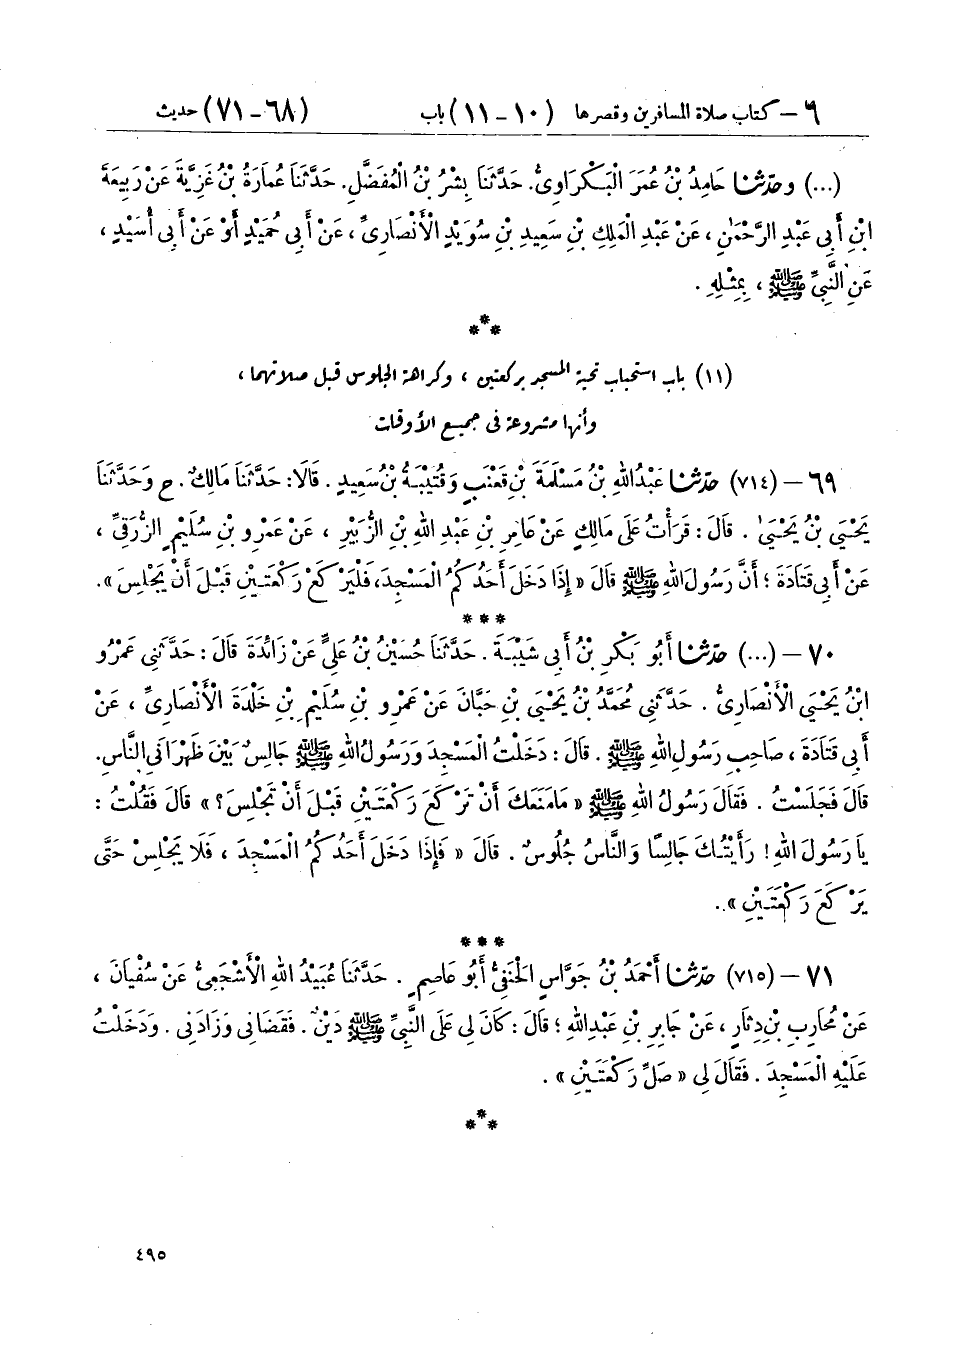 ٦ – كتاب صلاة المسافرين وقصرها (١٠ – ١١) باب (٦٨ – ٧١) حديث
(...) وحَدَّثَنَا حَامِدُ بْنُ عُمَرَ الْبَكْرَاوِيُّ. حَدَّثَنَا بِشْرُ بْنُ الْمُفَضَّلِ. حَدَّثَنَا عُمَارَةُ بْنُ غَزِيَّةَ عَنْ رَبِيعَةَ
ابْنِ أَبِي عَبْدِ الرَّحْمَنِ ، عَنْ عَبْدِ الْمَلِكِ بْنِ سَعِيدِ بْنِ سُوَيْدٍ الْأَنْصَارِيِّ ، عَنْ أَبِي حُمَيْدٍ أَوْ عَنْ أَبِي أُسَيْدٍ ،
عَنِ النَّبِيِّ ﷺ ، بِمِثْلِهِ .
***
(١١) باب استحباب تحية المسجد بركعتين ، وكراهة الجلوس قبل صلاتهما ،
وأنها مشروعة في جميع الأوقات
٦٩ – (٧١٤) حَدَّثَنَا عَبْدُ اللهِ بْنُ مَسْلَمَةَ بْنِ قَعْنَبٍ وَقُتَيْبَةُ بْنُ سَعِيدٍ . قَالَا : حَدَّثَنَا مَالِكٌ . ح وَحَدَّثَنَا
يَحْيَى بْنُ يَحْيَى . قَالَ : قَرَأْتُ عَلَى مَالِكٍ عَنْ عَامِرِ بْنِ عَبْدِ اللهِ بْنِ الزُّبَيْرِ ، عَنْ عَمْرِو بْنِ سُلَيْمٍ الزُّرَقِيِّ ،
عَنْ أَبِي قَتَادَةَ ؛ أَنَّ رَسُولَ اللهِ ﷺ قَالَ « إِذَا دَخَلَ أَحَدُكُمُ الْمَسْجِدَ، فَلْيَرْكَعْ رَكْعَتَيْنِ قَبْلَ أَنْ يَجْلِسَ ».
***
٧٠ – (...) حَدَّثَنَا أَبُو بَكْرِ بْنُ أَبِي شَيْبَةَ . حَدَّثَنَا حُسَيْنُ بْنُ عَلِيٍّ عَنْ زَائِدَةَ قَالَ : حَدَّثَنِي عَمْرُو
ابْنُ يَحْيَى الْأَنْصَارِيُّ . حَدَّثَنِي مُحَمَّدُ بْنُ يَحْيَى بْنِ حَبَّانَ عَنْ عَمْرِو بْنِ سُلَيْمِ بْنِ خَلْدَةَ الْأَنْصَارِيِّ ، عَنْ
أَبِي قَتَادَةَ ، صَاحِبِ رَسُولِ اللهِ ﷺ . قَالَ : دَخَلْتُ الْمَسْجِدَ وَرَسُولُ اللهِ ﷺ جَالِسٌ بَيْنَ ظَهْرَانَيِ النَّاسِ.
قَالَ فَجَلَسْتُ . فَقَالَ رَسُولُ اللهِ ﷺ « مَا مَنَعَكَ أَنْ تَرْكَعَ رَكْعَتَيْنِ قَبْلَ أَنْ تَجْلِسَ؟ » قَالَ فَقُلْتُ :
يَا رَسُولَ اللهِ ! رَأَيْتُكَ جَالِسًا وَالنَّاسُ جُلُوسٌ . قَالَ « فَإِذَا دَخَلَ أَحَدُكُمُ الْمَسْجِدَ ، فَلَا يَجْلِسْ حَتَّى
يَرْكَعَ رَكْعَتَيْنِ ».
***
٧١ – (٧١٥) حَدَّثَنَا أَحْمَدُ بْنُ جَوَّاسٍ الْحَنَفِيُّ أَبُو عَاصِمٍ . حَدَّثَنَا عُبَيْدُ اللهِ الْأَشْجَعِيُّ عَنْ سُفْيَانَ ،
عَنْ مُحَارِبِ بْنِ دِثَارٍ ، عَنْ جَابِرِ بْنِ عَبْدِ اللهِ ؛ قَالَ : كَانَ لِي عَلَى النَّبِيِّ ﷺ دَيْنٌ . فَقَضَانِي وَزَادَنِي . وَدَخَلْتُ
عَلَيْهِ الْمَسْجِدَ . فَقَالَ لِي « صَلِّ رَكْعَتَيْنِ » .
***
٤٩٥